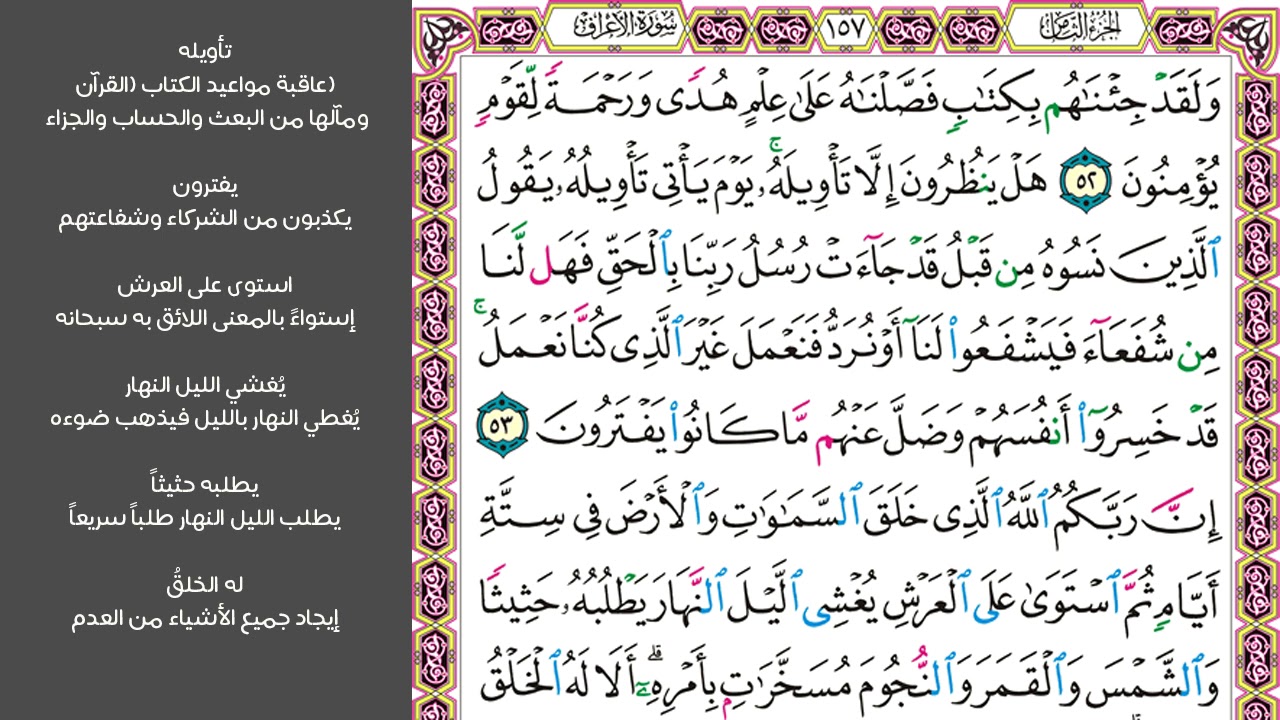 الجزء الثامن
١٥٧
سورة الأعراف
وَلَقَدْ جِئْنَٰهُم بِكِتَٰبٍ فَصَّلْنَٰهُ عَلَىٰ عِلْمٍ هُدًى وَرَحْمَةً لِّقَوْمٍ
يُؤْمِنُونَ ٥٢ هَلْ يَنظُرُونَ إِلَّا تَأْوِيلَهُۥۚ يَوْمَ يَأْتِى تَأْوِيلُهُۥ يَقُولُ
ٱلَّذِينَ نَسُوهُ مِن قَبْلُ قَدْ جَآءَتْ رُسُلُ رَبِّنَا بِٱلْحَقِّ فَهَل لَّنَا
مِن شُفَعَآءَ فَيَشْفَعُوا۟ لَنَآ أَوْ نُرَدُّ فَنَعْمَلَ غَيْرَ ٱلَّذِى كُنَّا نَعْمَلُۚ
قَدْ خَسِرُوٓا۟ أَنفُسَهُمْ وَضَلَّ عَنْهُم مَّا كَانُوا۟ يَفْتَرُونَ ٥٣
إِنَّ رَبَّكُمُ ٱللَّهُ ٱلَّذِى خَلَقَ ٱلسَّمَٰوَٰتِ وَٱلْأَرْضَ فِى سِتَّةِ
أَيَّامٍ ثُمَّ ٱسْتَوَىٰ عَلَى ٱلْعَرْشِ يُغْشِى ٱلَّيْلَ ٱلنَّهَارَ يَطْلُبُهُۥ حَثِيثًا
وَٱلشَّمْسَ وَٱلْقَمَرَ وَٱلنُّجُومَ مُسَخَّرَٰتٍۭ بِأَمْرِهِۦٓۗ أَلَا لَهُ ٱلْخَلْقُ
تأويله
(عاقبة مواعيد الكتاب (القرآن
ومآلها من البعث والحساب والجزاء
يفترون
يكذبون من الشركاء وشفاعتهم
استوى على العرش
إستواءً بالمعنى اللائق به سبحانه
يُغشي الليل النهار
يُغطي النهار بالليل فيذهب ضوءه
يطلبه حثيثاً
يطلب الليل النهار طلباً سريعاً
له الخلقُ
إيجاد جميع الأشياء من العدم